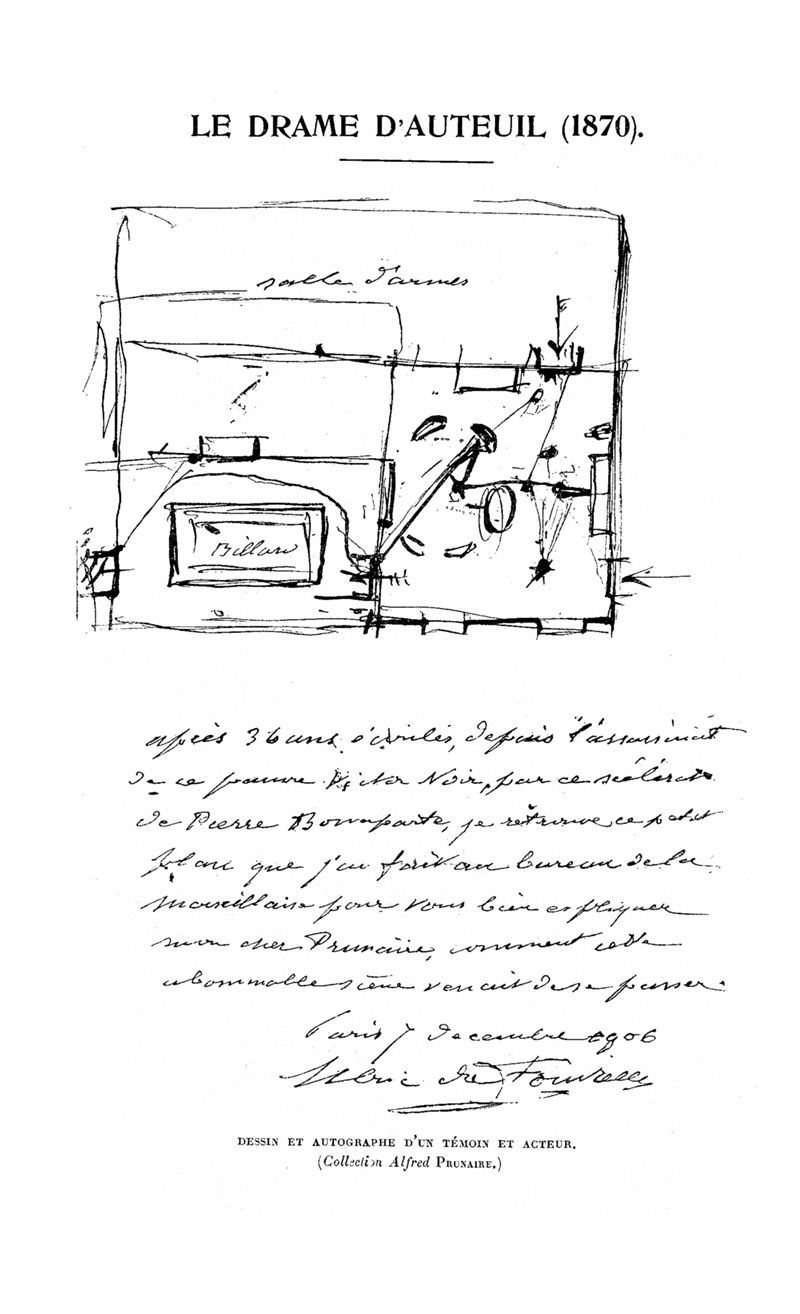 LE DRAME D'AUTEUIL (1870).
salle d'armes
Billard
après 36 ans écoulés, depuis l'assassinat
de ce pauvre Victor Noir, par ce scélérat
de Pierre Bonaparte, je retrouve ce petit
plan que j'ai fait au bureau de la
Marseillaise pour vous bien expliquer
mon cher Prunaire, comment cette
abominable scène venait de se passer.
Paris 7 decembre 1906
Ulric de Fonvielle
DESSIN ET AUTOGRAPHE D'UN TÉMOIN ET ACTEUR.
(Collection Alfred PRUNAIRE.)